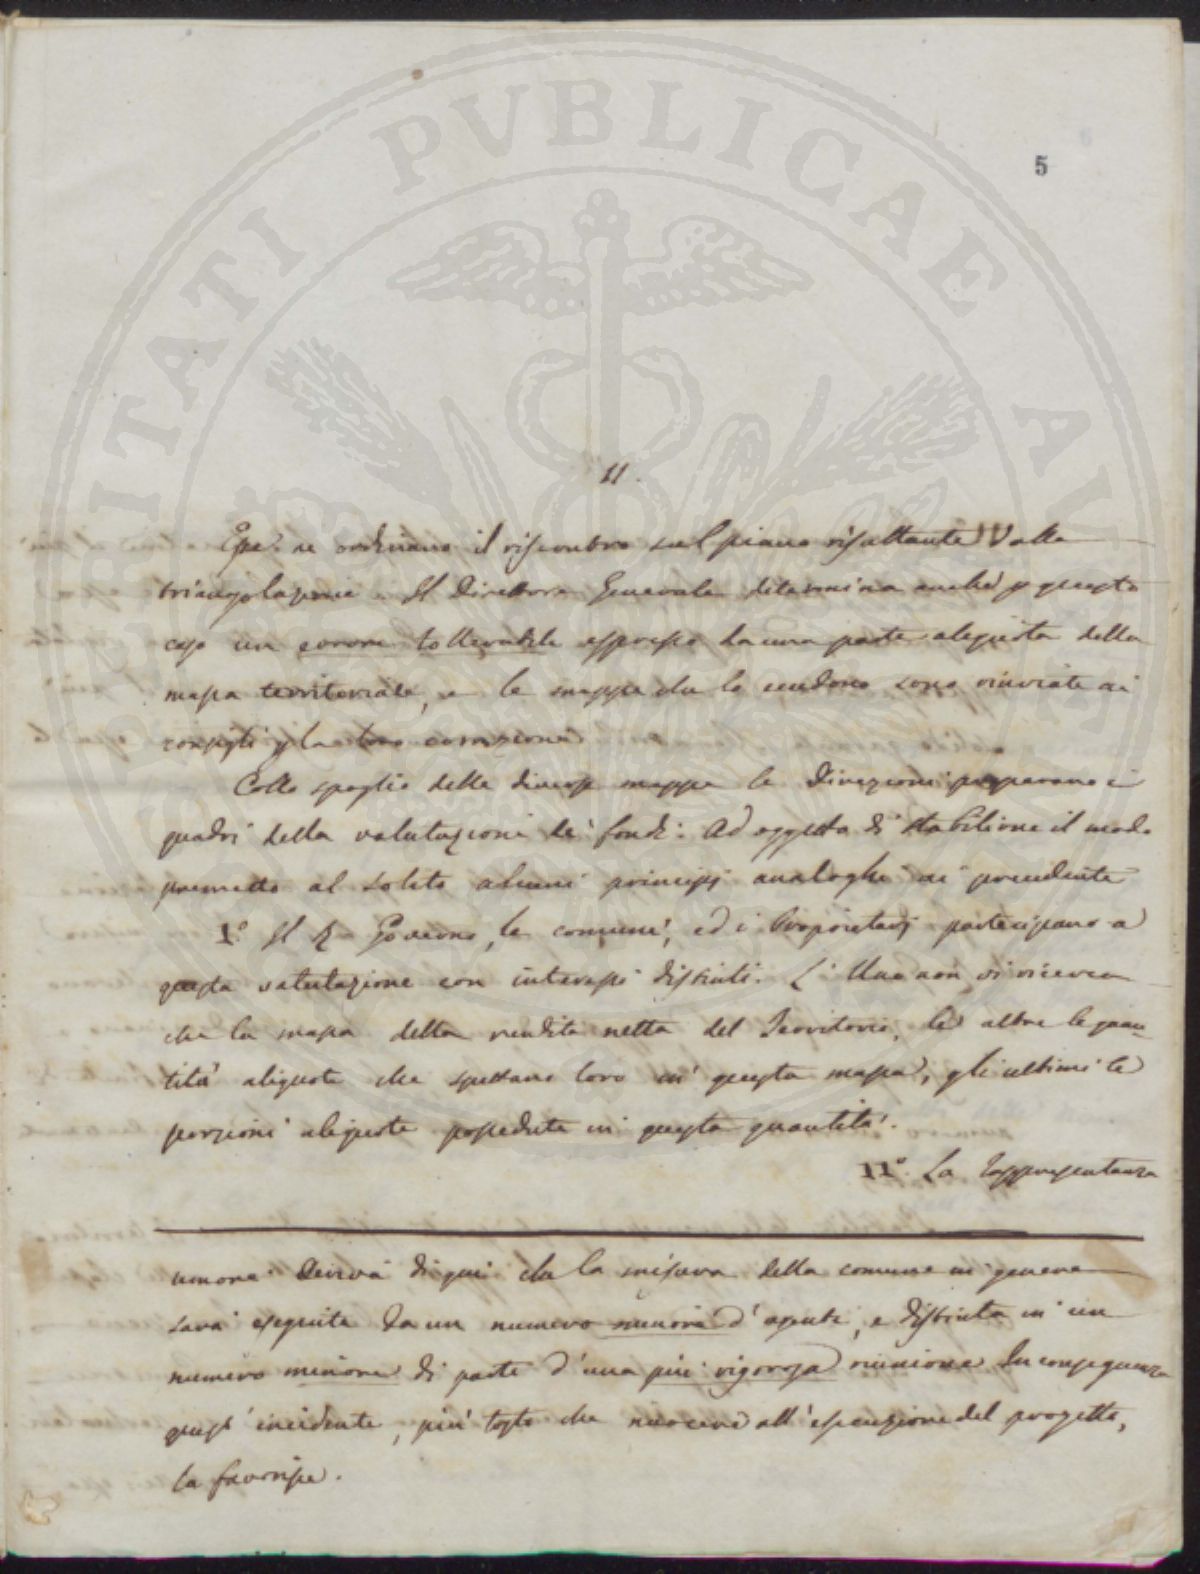 PVBLICAE
5
11.
Esse ne ordinano il riscontro sul piano risultante dalla
triangolazione. Il Direttore Generale determina anche p questo
caso un errore tollerabile espresso da una parte aliquota della
massa territoriale, e le mappe che lo eccedono sono rinviate ai
consigli p la loro correzione
Collo spoglio delle diverse mappe le Direzioni preparano i
quadri della valutazione de' fondi. Ad oggetto di stabilirne il modo
premetto al solito alcuni principj analoghi ai precedenti
1.° Il R. Governo, le comuni, ed i Proprietarj partecipano a
questa valutazione con interessi distinti. L' Uno non vi ricerca
che la massa della rendita netta del Territorio, le altre le quan-
tità aliquote che spettano loro in questa massa, gli ultimi le
porzioni aliquote possedute in questa quantità.
11.° La rappresentanza
umore. Deriva di qui che la misura della comune in genere
sarà eseguita da un numero minore d'agenti, e distinta in un
numero minore di parti d'una più rigorosa riunione In conseguenza
quest' incidente, più tosto che nuocere all'esecuzione del progetto,
la favorisce.